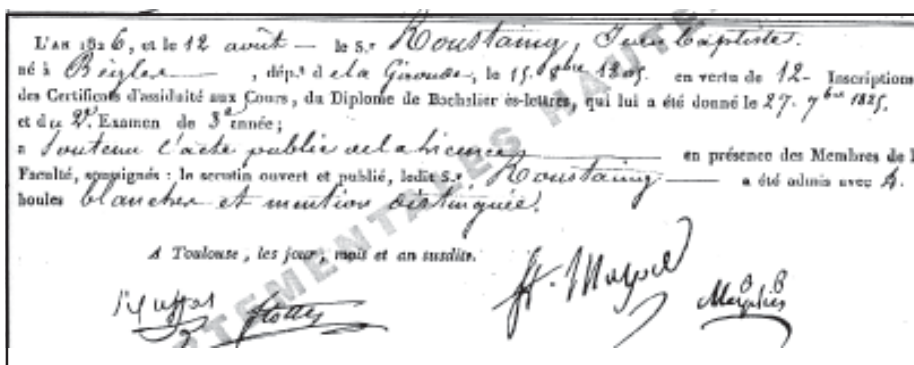 L'AN 1826, et le 12 août — le S.r Roustaing, Jean Baptiste.
né à Bègles —, dép.t de la Gironde, le 15. 8bre 1805. en vertu de 12- Inscriptions
des Certificats d'assiduité aux Cours, du Diplome de Bachelier ès-lettres, qui lui a été donné le 27. 7bre 1825.
et du 2e. Examen de 3e année;
a soutenu l'acte public de la Licence — en présence des Membres de l
Faculté, soussignés : le scrutin ouvert et publié, ledit S.r Roustaing — a été admis avec 4.
boules blanches et mention distinguée.
A Toulouse, les jour, mois et an susdits.
TEMENTALES HAUTE